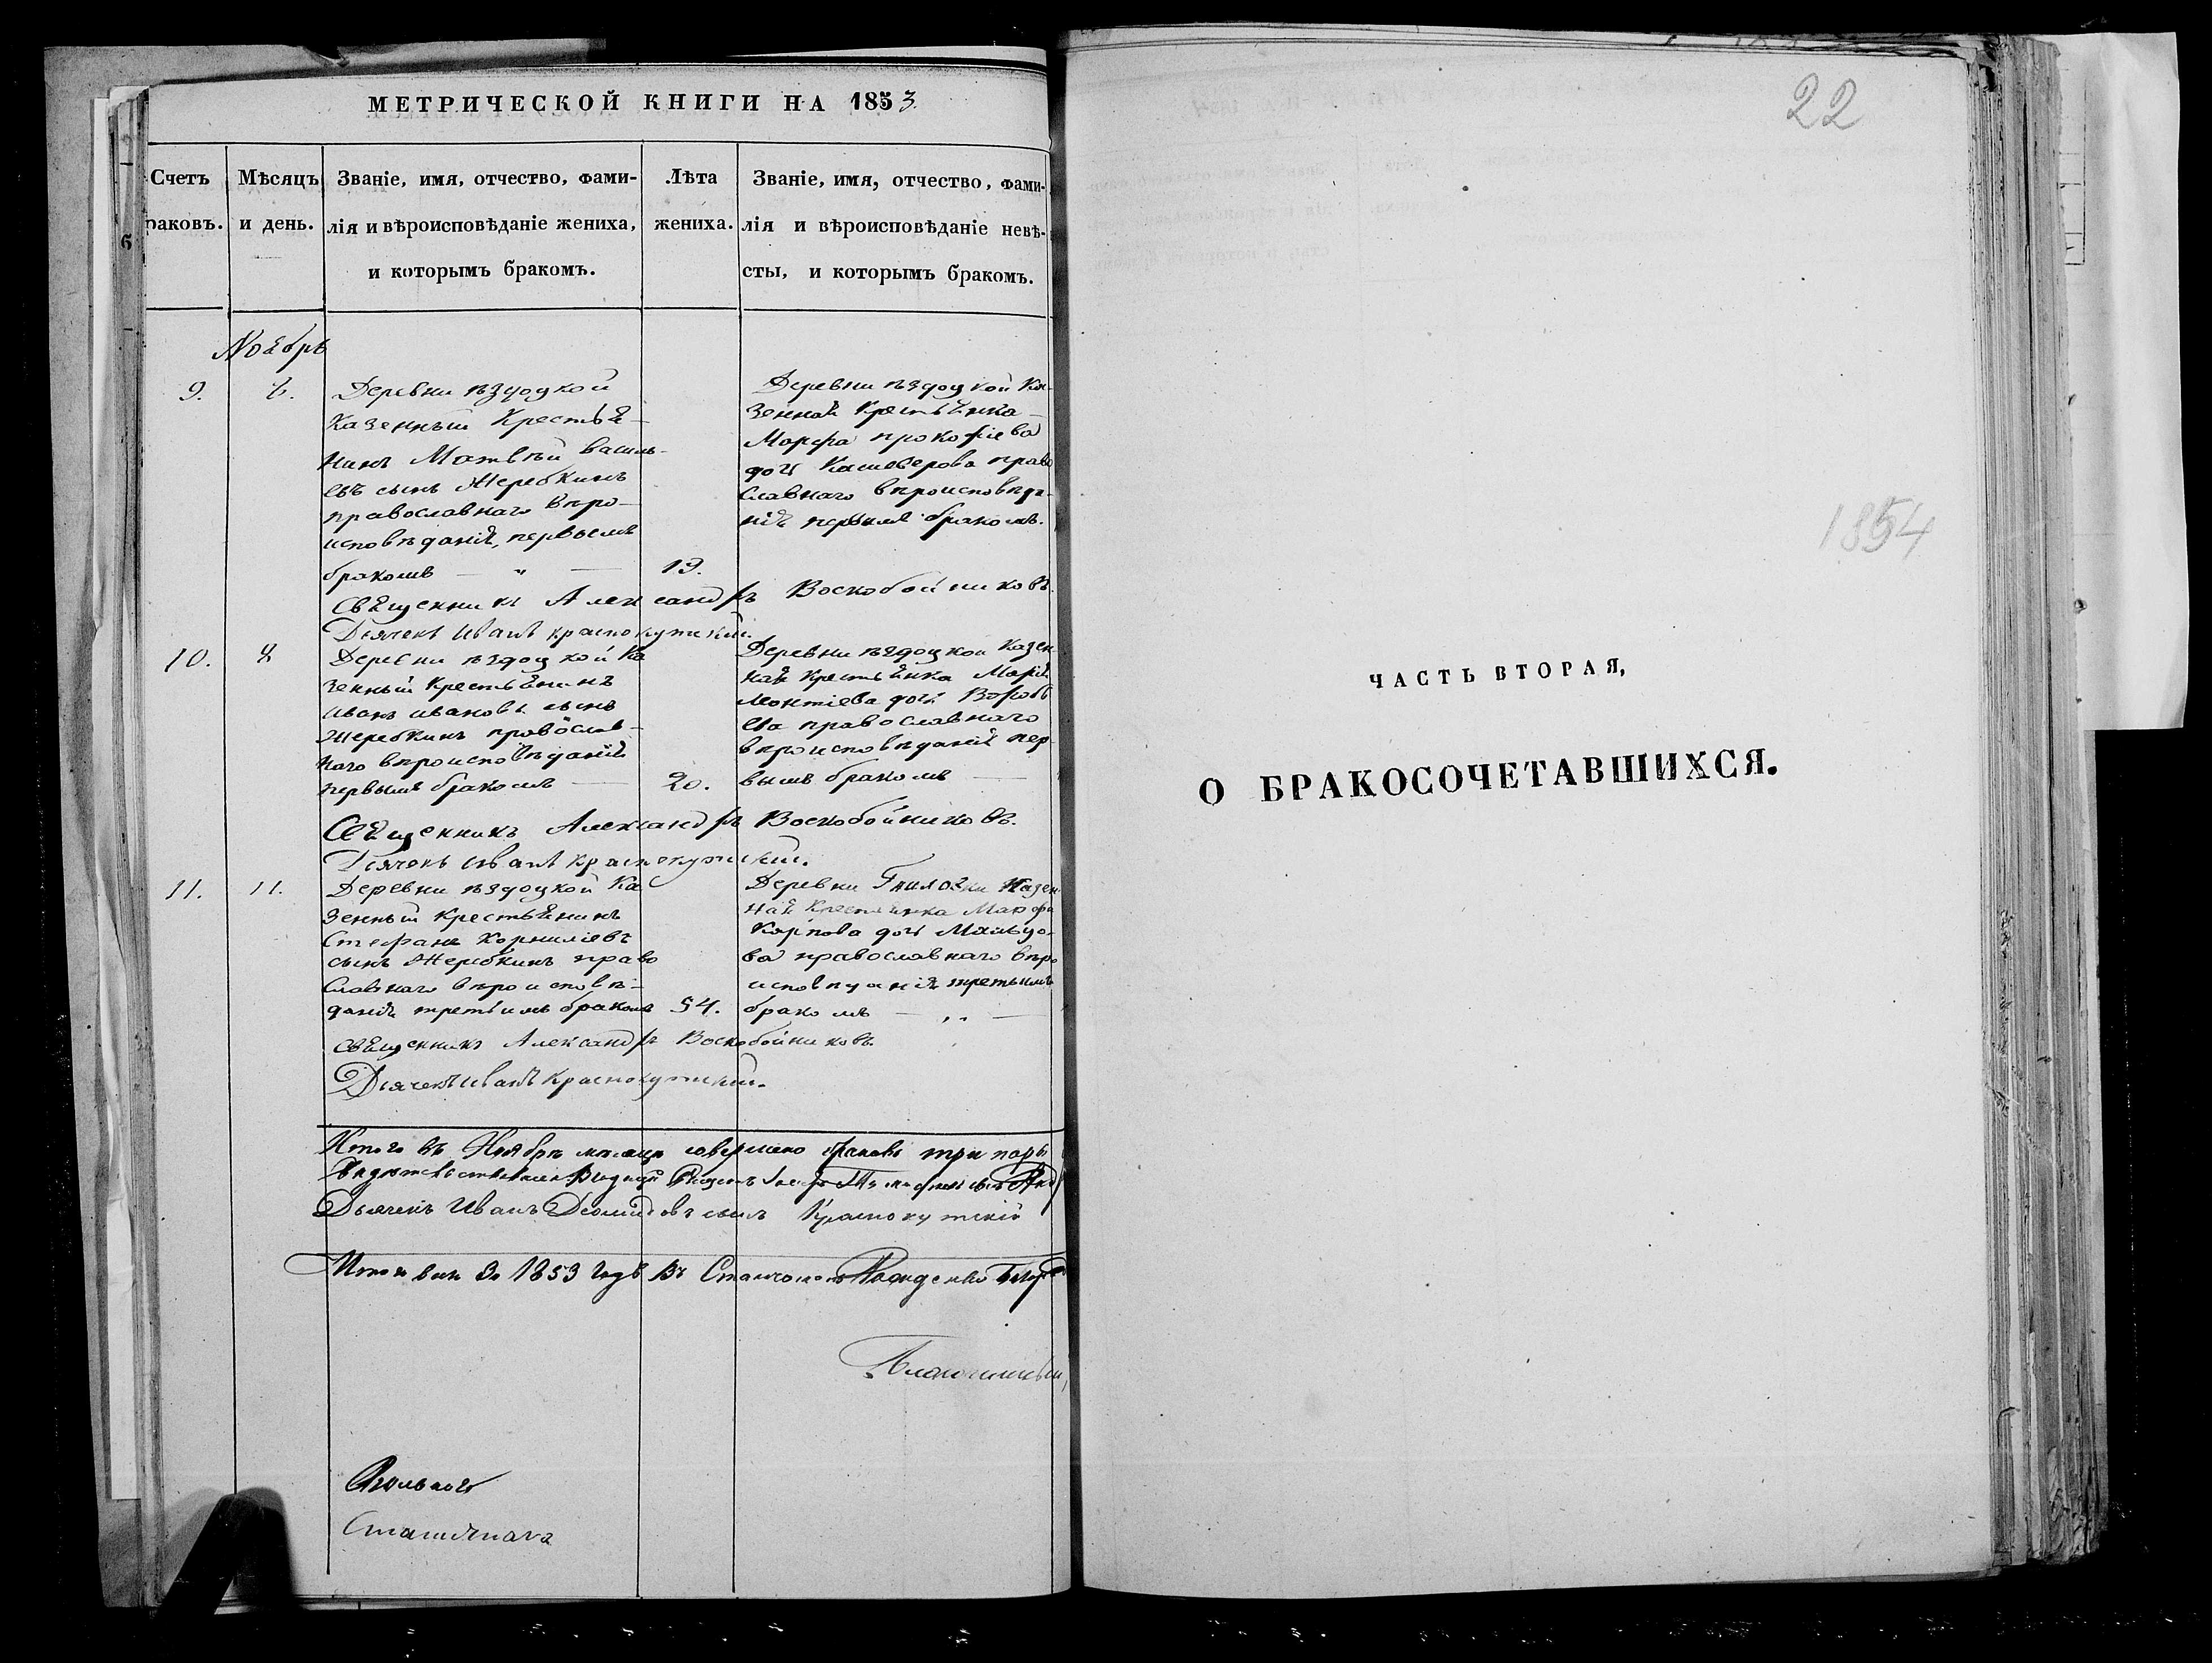 МЕТРИЧЕСКОЙ КНИГИ НА 1853.
Счетъ
раковъ.
Мѣсяцъ
и день.
Званіе, имя, отчество, фами-
лія и вѣроисповѣданіе жениха,
и которымъ бракомъ.
Лѣта
жениха.
Званіе, имя, отчество, фами-
лія и вѣроисповѣданіе невѣ-
сты, и которымъ бракомъ.
Ноябрь
9.
8.
Деревни ѣздоцкой
Казенный Крестья-
нинъ Матвѣй василь-
евъ сынъ Жеребкинъ
православнаго вѣро-
исповѣданія, первымъ
бракомъ — " —
19.
Деревни ѣздоцкой Ка-
зенная Крестьянка
Марфа прокофіева
дочь право
славнаго вѣроисповѣда-
нія первымъ бракомъ.
Священникъ Александръ Воскобойниковъ.
Дьячекъ Иванъ краснокутскій.
10.
8
Деревни ѣздоцкой Ка
зенный Крестьянинъ
Иванъ ивановъ сынъ
Жеребкинъ православ-
наго вѣроисповѣданія
первымъ бракомъ —
20.
Деревни ѣздоцкой Казен
ная Крестьянка Марія
Леонтіева дочь Воробь
ева православнаго
вѣроисповѣданія пер
вымъ бракомъ —
Священникъ Александръ Воскобойниковъ.
Дьячекъ Иванъ краснокутскій.
11.
11.
Деревни ѣздоцкой Ка
зенный Крестьянинъ
Стефанъ Корниліевъ
сынъ Жеребкинъ право
славнаго вѣроисповѣ-
данія третьимъ бракомъ
54.
Деревни Казен
ная Крестьянка Марфа
Карпова дочь
ва православнаго вѣро
исповѣданія третьимъ
бракомъ — „ —
Священникъ Александръ Воскобойниковъ.
Дьячекъ Иванъ Краснокутскій.
Итого въ Ноябрѣ мѣсяцѣ совершено браковъ три пары
Дьячекъ Иванъ сынъ Краснокутскій
Итого всѣхъ въ 1853 году въ
22
1854
ЧАСТЬ ВТОРАЯ,
О БРАКОСОЧЕТАВШИХСЯ.